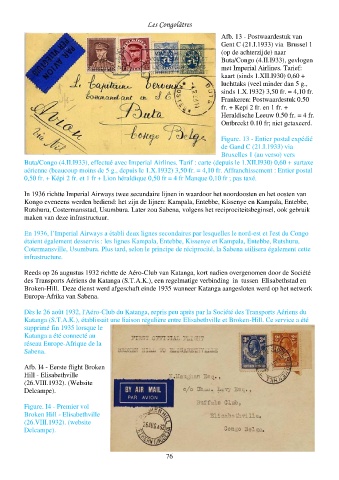 Les Congolâtres
Afb. I3 - Postwaardestuk van
Gent C (21.I.1933) via Brussel 1
(op de achterzijde) naar
Buta/Congo (4.II.I933), gevlogen
met Imperial Airlines. Tarief:
kaart (sinds 1.XII.I930) 0,60 +
luchttaks (veel minder dan 5 g.,
sinds 1.X.1932) 3,50 fr. = 4,10 fr.
Frankeren: Postwaardestuk 0,50
fr. + Kepi 2 fr. en 1 fr. +
Heraldische Leeuw 0.50 fr. = 4 fr.
Ontbreekt 0.10 fr; niet getaxeerd.
Le Capitaine
commandant en
Buta
Congo Belge
Avion
Figure. I3 - Entier postal expédié
de Gand C (21.I.1933) via
Bruxelles 1 (au verso) vers
Buta/Congo (4.II.I933), effectué avec Imperial Airlines. Tarif : carte (depuis le 1.XII.I930) 0,60 + surtaxe
aérienne (beaucoup moins de 5 g., depuis le 1.X.1932) 3,50 fr. = 4,10 fr. Affranchissement : Entier postal
0,50 fr. + Képi 2 fr. et 1 fr + Lion héraldique 0,50 fr = 4 fr Manque 0,10 fr ; pas taxé.
In 1936 richtte Imperial Airways twee secundaire lijnen in waardoor het noordoosten en het oosten van
Kongo eveneens werden bediend: het zijn de lijnen: Kampala, Entebbe, Kissenye en Kampala, Entebbe,
Rutshuru, Costermansstad, Usumbura. Later zou Sabena, volgens het reciprociteitsbeginsel, ook gebruik
maken van deze infrastructuur.
En 1936, l'Imperial Airways a établi deux lignes secondaires par lesquelles le nord-est et l'est du Congo
étaient également desservis : les lignes Kampala, Entebbe, Kissenye et Kampala, Entebbe, Rutshuru,
Costermansville, Usumbura. Plus tard, selon le principe de réciprocité, la Sabena utilisera également cette
infrastructure.
Reeds op 26 augustus 1932 richtte de Aéro-Club van Katanga, kort nadien overgenomen door de Société
des Transports Aériens du Katanga (S.T.A.K.), een regelmatige verbinding in tussen Elisabethstad en
Broken-Hill. Deze dienst werd afgeschaft einde 1935 wanneer Katanga aangesloten werd op het netwerk
Europa-Afrika van Sabena.
Dès le 26 août 1932, l'Aéro-Club du Katanga, repris peu après par la Société des Transports Aériens du
Katanga (S.T.A.K.), établissait une liaison régulière entre Elisabethville et Broken-Hill. Ce service a été
supprimé fin 1935 lorsque le
Katanga a été connecté au
réseau Europe-Afrique de la
Sabena.
Afb. I4 - Eerste flight Broken
Hill - Elisabethville
(26.VIII.1932). (Website
Delcampe).
Figure. I4 - Premier vol
Broken Hill - Elisabethville
(26.VIII.1932). (website
Delcampe).
FIRST OFFICIAL FLIGHT
BROKEN HILL TO ELISABETHVILLE
BY AIR MAIL
PAR AVION
Esq.,
c/o
Levy Esq.,
Buffalo Club,
Elisabethville,
Congo Belge.
76